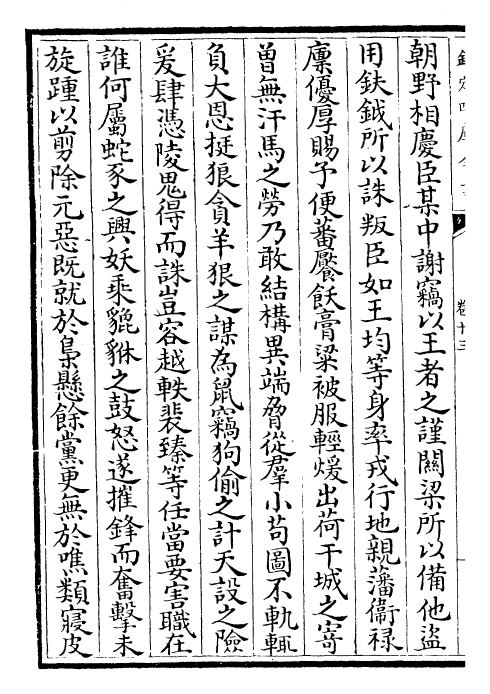 欽定四庫全書
卷十三
朝野相慶臣某中謝竊以王者之謹關梁所以備他盜
用鈇鉞所以誅叛臣如王均等身率戎行地親藩衞禄
廩優厚賜予便蕃饜飫膏粱被服輕煖出荷干城之寄
曽無汗馬之勞乃敢結構異端脅從羣小茍圖不軌輙
負大恩挻狼貪羊狠之謀為鼠竊狗偷之計天設之險
爰肆憑陵鬼得而誅豈容越軼裴臻等任當要害職在
誰何屬蛇豕之興妖乘貔貅之鼓怒遂摧鋒而奮擊未
旋踵以剪除元惡既就於梟懸餘黨更無於噍類寢皮